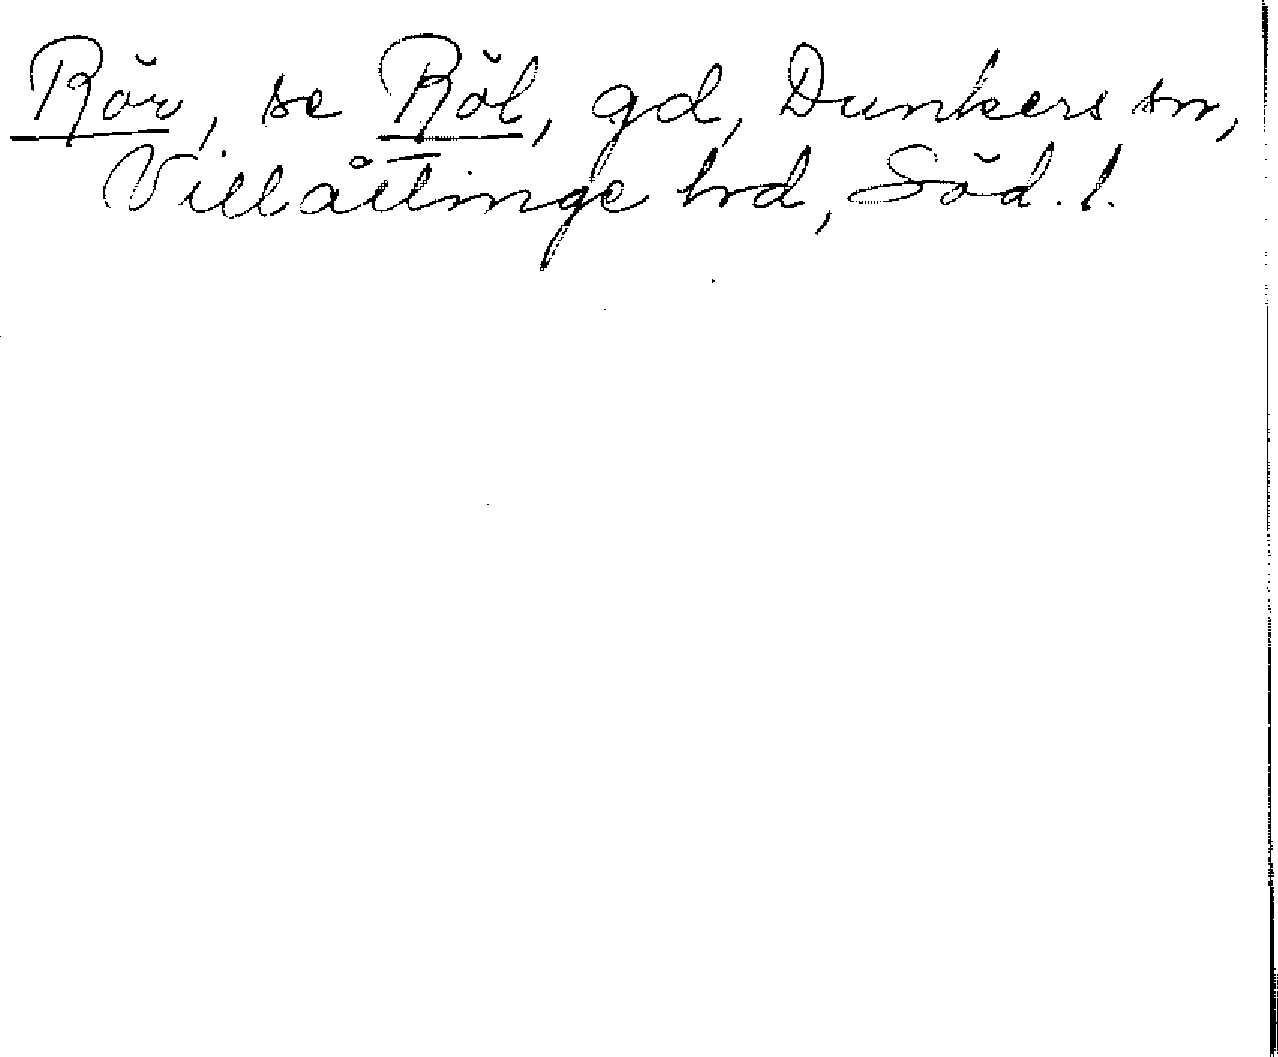 Rör, se Röl, gd, Dunkers sn,
Villåttinge hrd, Söd. l.